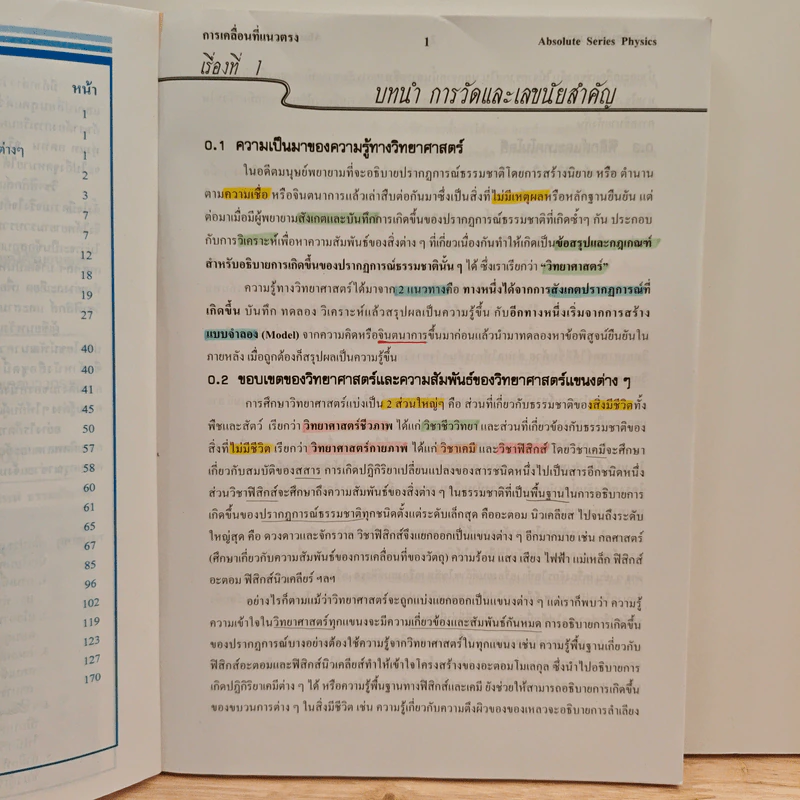 หน้า
1
1
1
2
3
7
7
12
18
19
27
40
40
41
45
50
57
58
60
61
65
67
85
96
102
119
123
127
170
การเคลื่อนที่แนวตรง 1 Absolute Series Physics
เรื่องที่ 1
บทนำ การวัดและเลขนัยสำคัญ
0.1 ความเป็นมาของความรู้ทางวิทยาศาสตร์
ในอดีตมนุษย์พยายามที่จะอธิบายปรากฏการณ์ธรรมชาติโดยการสร้างนิยาย หรือ ตำนาน
ตามความเชื่อ หรือจินตนาการแล้วเล่าสืบต่อกันมาซึ่งเป็นสิ่งที่ไม่มีเหตุผลหรือหลักฐานยืนยัน แต่
ต่อมาเมื่อมีผู้พยายามสังเกตและบันทึกการเกิดขึ้นของปรากฏการณ์ธรรมชาติที่เกิดซ้ำๆ กัน ประกอบ
กับการวิเคราะห์เพื่อหาความสัมพันธ์ของสิ่งต่าง ๆ ที่เกี่ยวเนื่องกันทำให้เกิดเป็นข้อสรุปและกฎเกณฑ์
สำหรับอธิบายการเกิดขึ้นของปรากฏการณ์ธรรมชาตินั้น ๆ ได้ ซึ่งเราเรียกว่า “วิทยาศาสตร์”
ความรู้ทางวิทยาศาสตร์ได้มาจาก 2 แนวทางคือ ทางหนึ่งได้จากการสังเกตปรากฏการณ์ที่
เกิดขึ้น บันทึก ทดลอง วิเคราะห์แล้วสรุปผลเป็นความรู้ขึ้น กับอีกทางหนึ่งเริ่มจากการสร้าง
แบบจำลอง (Model) จากความคิดหรือจินตนาการขึ้นมาก่อนแล้วนำมาทดลองหาข้อพิสูจน์ยืนยันใน
ภายหลัง เมื่อถูกต้องก็สรุปผลเป็นความรู้ขึ้น
0.2 ขอบเขตของวิทยาศาสตร์และความสัมพันธ์ของวิทยาศาสตร์แขนงต่าง ๆ
การศึกษาวิทยาศาสตร์แบ่งเป็น 2 ส่วนใหญ่ๆ คือ ส่วนที่เกี่ยวกับธรรมชาติของสิ่งมีชีวิตทั้ง
พืชและสัตว์ เรียกว่า วิทยาศาสตร์ชีวภาพ ได้แก่ วิชาชีววิทยา และส่วนที่เกี่ยวข้องกับธรรมชาติของ
สิ่งที่ไม่มีชีวิต เรียกว่า วิทยาศาสตร์กายภาพ ได้แก่ วิชาเคมี และวิชาฟิสิกส์ โดยวิชาเคมีจะศึกษา
เกี่ยวกับสมบัติของสสาร การเกิดปฏิกิริยาเปลี่ยนแปลงของสารชนิดหนึ่งไปเป็นสารอีกชนิดหนึ่ง
ส่วนวิชาฟิสิกส์จะศึกษาถึงความสัมพันธ์ของสิ่งต่าง ๆ ในธรรมชาติที่เป็นพื้นฐานในการอธิบายการ
เกิดขึ้นของปรากฏการณ์ธรรมชาติทุกชนิดตั้งแต่ระดับเล็กสุด คืออะตอม นิวเคลียส ไปจนถึงระดับ
ใหญ่สุด คือ ดวงดาวและจักรวาล วิชาฟิสิกส์จึงแยกออกเป็นแขนงต่าง ๆ อีกมากมาย เช่น กลศาสตร์
(ศึกษาเกี่ยวกับความสัมพันธ์ของการเคลื่อนที่ของวัตถุ) ความร้อน แสง เสียง ไฟฟ้า แม่เหล็ก ฟิสิกส์
อะตอม ฟิสิกส์นิวเคลียร์ ฯลฯ
อย่างไรก็ตามแม้ว่าวิทยาศาสตร์จะถูกแบ่งแยกออกเป็นแขนงต่าง ๆ แต่เราก็พบว่า ความรู้
ความเข้าใจในวิทยาศาสตร์ทุกแขนงจะมีความเกี่ยวข้องและสัมพันธ์กันหมด การอธิบายการเกิดขึ้น
ของปรากฏการณ์บางอย่างต้องใช้ความรู้จากวิทยาศาสตร์ในทุกแขนง เช่น ความรู้พื้นฐานเกี่ยวกับ
ฟิสิกส์อะตอมและฟิสิกส์นิวเคลียสทำให้เข้าใจโครงสร้างของอะตอมโมเลกุล ซึ่งนำไปอธิบายการ
เกิดปฏิกิริยาเคมีต่าง ๆ ได้ หรือความรู้พื้นฐานทางฟิสิกส์และเคมี ยังช่วยให้สามารถอธิบายการเกิดขึ้น
ของขบวนการต่าง ๆ ในสิ่งมีชีวิต เช่น ความรู้เกี่ยวกับความตึงผิวของของเหลวจะอธิบายการลำเลียง